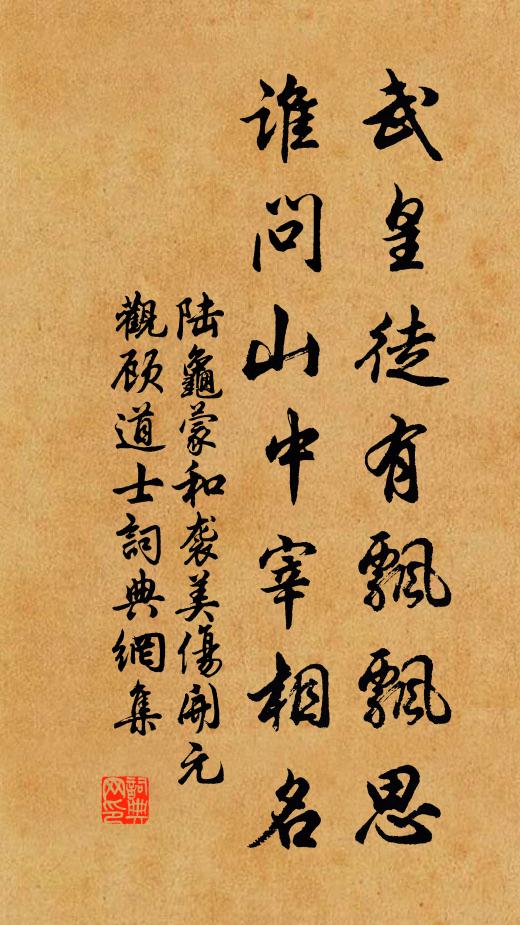 武皇徒有飄飄思
誰問山中宰相名
陆龜蒙和袭美傷開元
觀顾道士詞典網集
詞典
网印